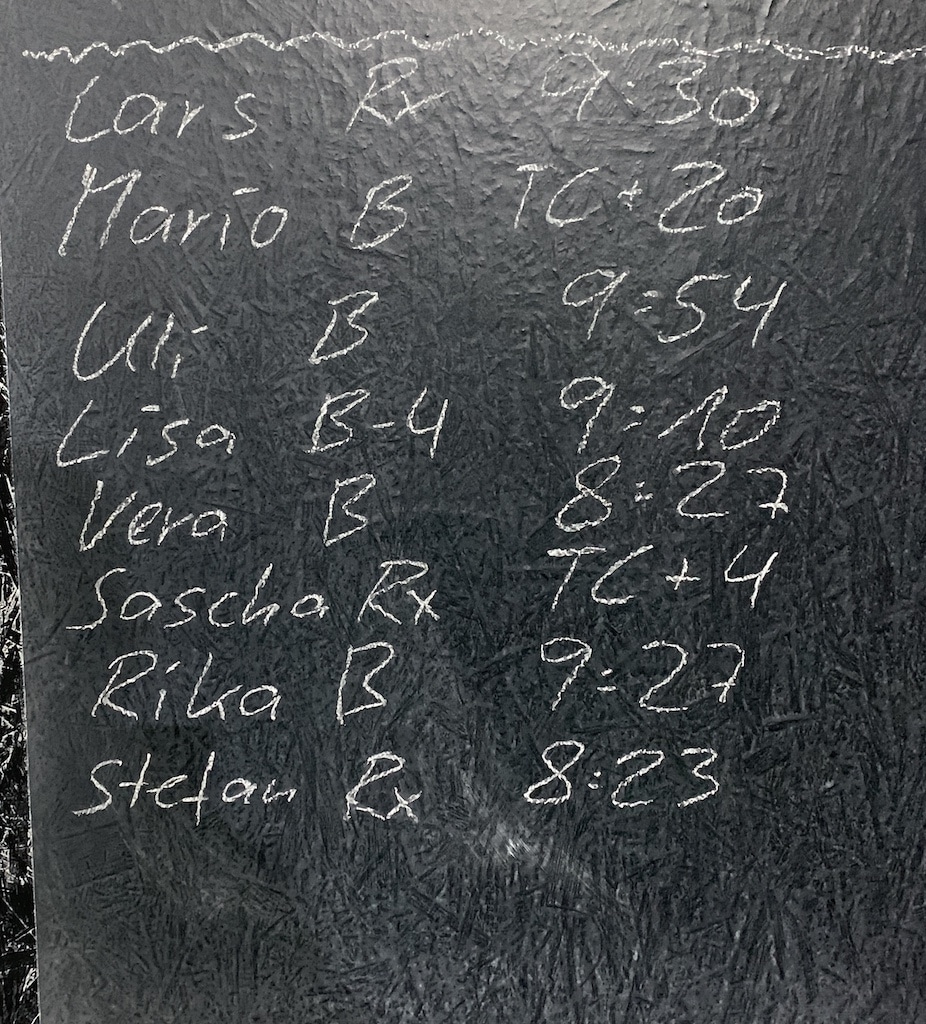 Lars Rx 9:30
Mario B TC+20
Uli B 9:54
Lisa B-4 9:10
Vera B 8:27
Sascha Rx TC+4
Rika B 9:27
Stefan Rx 8:23